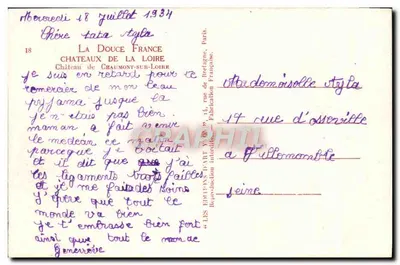 Mercredi 18 juillet 1934
Chère tata Ayla
18
LA DOUCE FRANCE
CHATEAUX DE LA LOIRE
Château de CHAUMONT-SUR-LOIRE
je suis en retard pour te
remercier de mon beau
pyjama jusque la
je n'étais pas bien.
maman a fait venir
le médecin ce matin
parceque je boitait
et il dit que j'ai
les ligaments trop faibles
et je me fais des soins
j'espère que tout le
monde va bien
je t'embrasse bien fort
ainsi que tout le monde
Geneviève
"LES EDITIONS D'ART YVON", 15, rue de Bretagne, Paris.
Reproduction interdite. Fabrication Française.
Mademoiselle Ayla
17 rue d'
a Villemomble
Seine